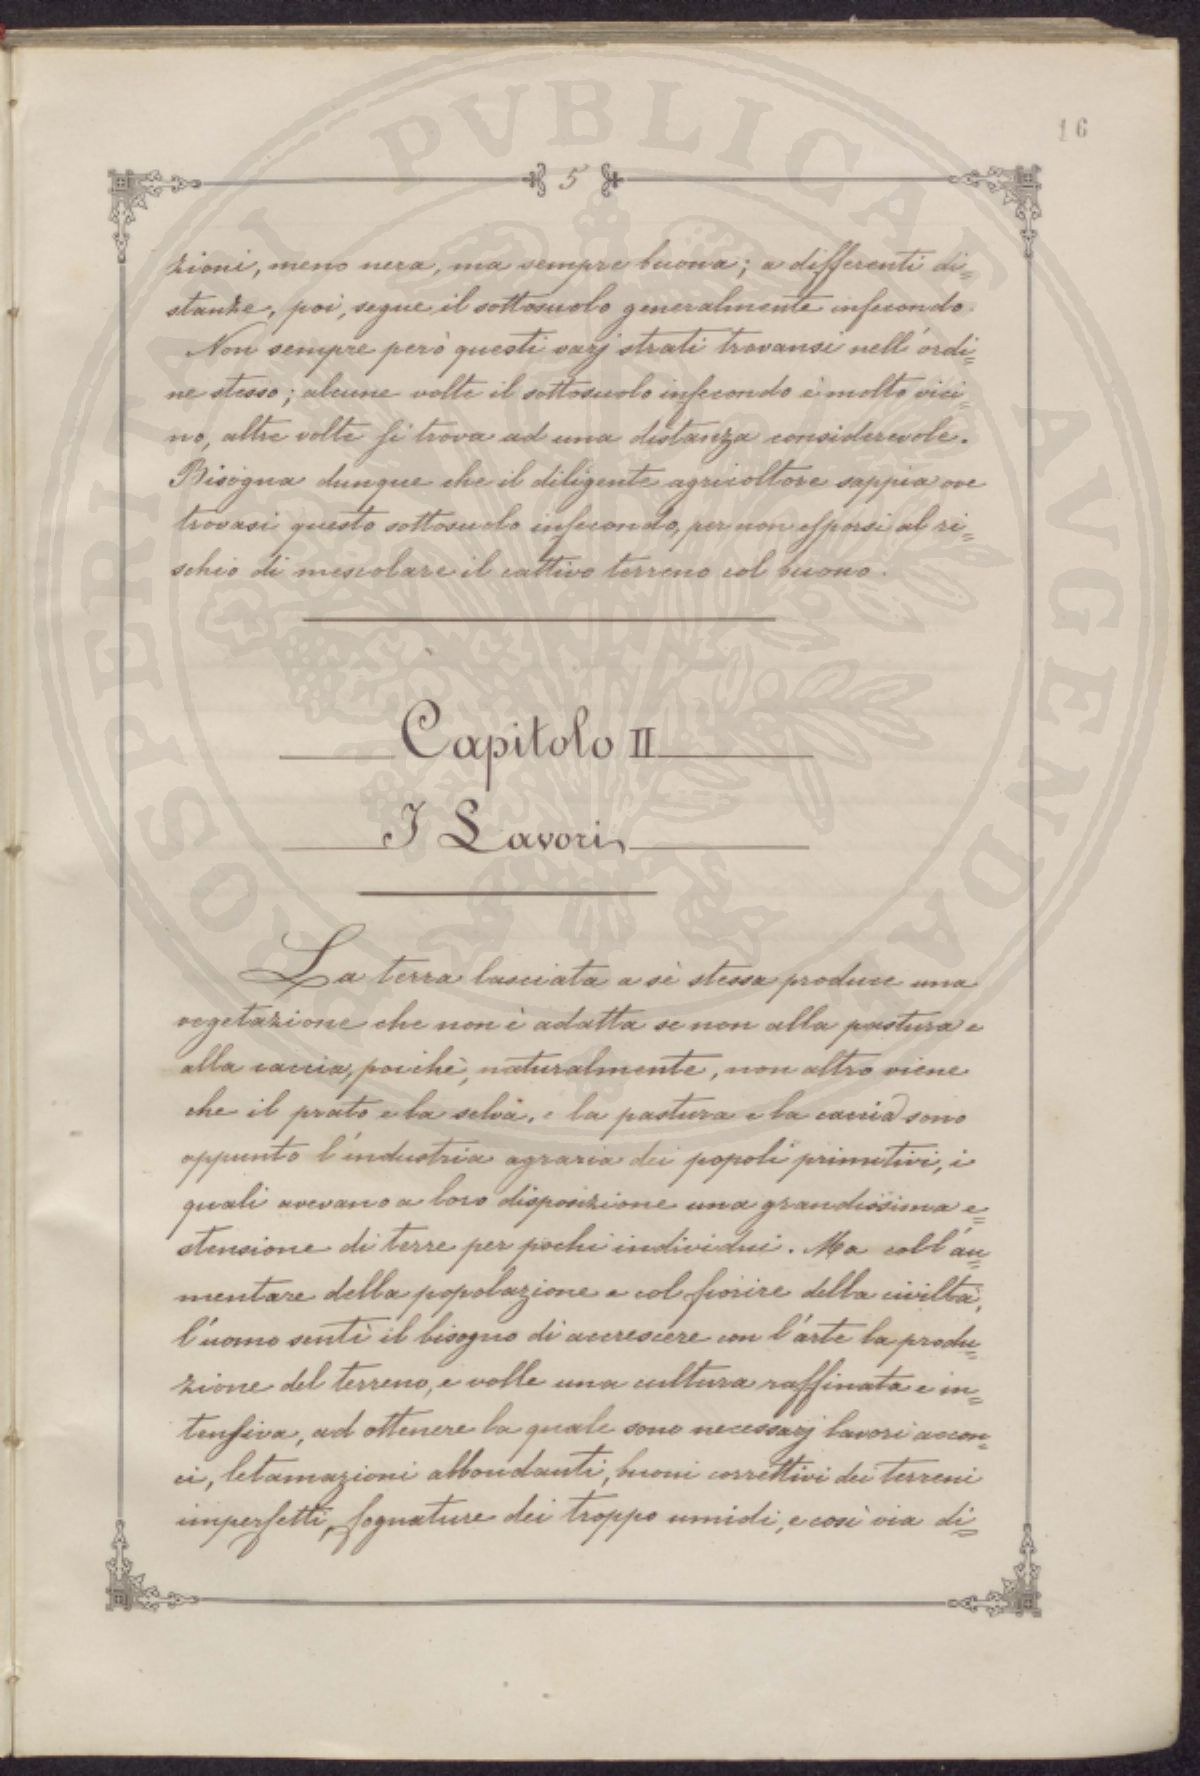 16
5
zioni, meno nera, ma sempre buona; a differenti di=
stanze, poi, segue il sottosuolo generalmente infecondo.
Non sempre però questi varj strati trovansi nell'ordi=
ne stesso; alcune volte il sottosuolo infecondo è molto vici=
no, altre volte si trova ad una distanza considerevole.
Bisogna dunque che il diligente agricoltore sappia ove
trovasi questo sottosuolo infecondo, per non esporsi al ri=
schio di mescolare il cattivo terreno col buono.
Capitolo II
I Lavori
La terra lasciata a sè stessa produce una
vegetazione che non è adatta se non alla pastura e
alla caccia, poichè, naturalmente, non altro viene
che il prato e la selva, e la pastura e la caccia sono
appunto l'industria agraria dei popoli primitivi, i
quali avevano a loro disposizione una grandissima e=
stensione di terre per pochi individui. Ma coll'au=
mentare della popolazione e col fiorire della civiltà,
l'uomo sentì il bisogno di accrescere con l'arte la produ=
zione del terreno, e volle una cultura raffinata e in=
tensiva, ad ottenere la quale sono necessarj lavori accon=
ci, letamazioni abbondanti, buoni correttivi dei terreni
imperfetti, fognature dei troppo umidi, e così via di=
PROSPERITATI PVBLICAE AVGENDAE